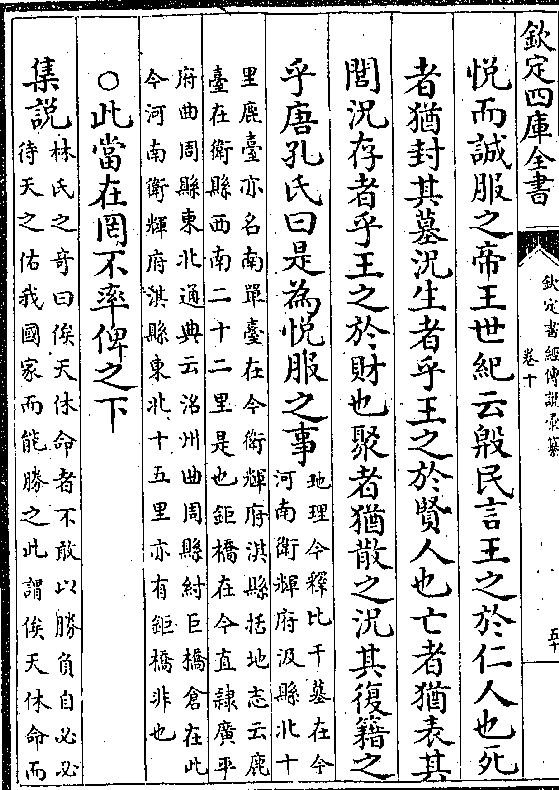 欽定四庫全書
欽定書經傳說彙纂
卷十
五十
悅而誠服之帝王世紀云殷民言王之於仁人也死
者猶封其墓況生者乎王之於賢人也亡者猶表其
閭況存者乎王之於財也聚者猶散之況其復籍之
乎唐孔氏曰是為悅服之事
地理今釋比干墓在今
河南衛輝府汲縣北十
里鹿臺亦名南單臺在今衛輝府淇縣括地志云鹿
臺在衛縣西南二十二里是也鉅橋在今直隸廣平
府曲周縣東北通典云洺州曲周縣紂巨橋倉在此
今河南衛輝府淇縣東北十五里亦有鉅橋非也
○此當在罔不率俾之下
集說
林氏之奇曰俟天休命者不敢以勝負自必必
待天之佑我國家而能勝之此謂俟天休命而